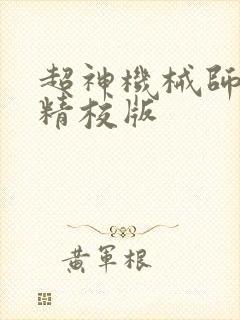 超神機械師
精校版
黃軍根